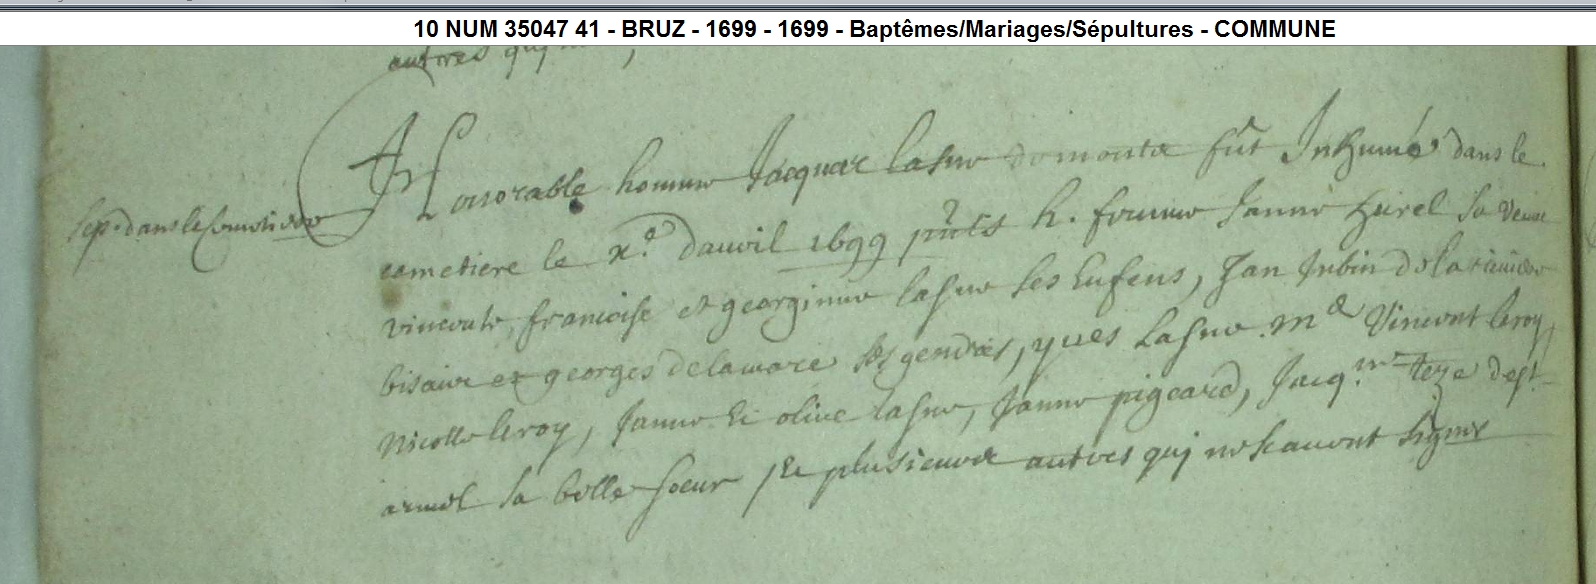 10 NUM 35047 41 - BRUZ - 1699 - 1699 - Baptêmes/Mariages/Sépultures - COMMUNE
autres qui
Honorable homme Jacques lasne fût Inhumé dans le
Sep. dans le Cemetiere
cemetiere le xe. d'avril 1699 pnts h. femme Janne hurel sa veuve
francoise et georginne lasne ses Enfens, Jan Jubin de la riviere
et georges delamare ses gendres, yves Lasne. Me Vincent leroy,
Nicolle leroy, Janne Et olive lasne, Janne pigeard, Jacq.
armel sa belle soeur Et plusieurs autres qui ne scavent signer